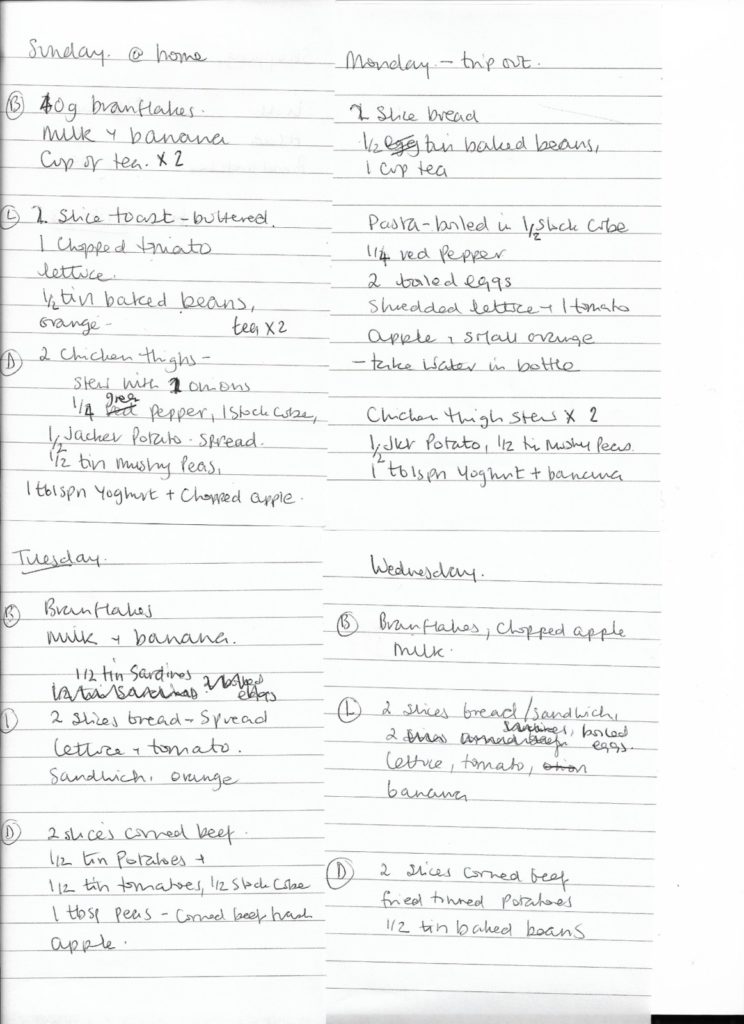 Sunday. @ home
Ⓑ 40g branflakes.
Milk + banana
Cup of tea. x 2
Ⓛ 2 Slice toast - buttered.
1 Chopped tomato
lettuce.
1/2 tin baked beans,
orange - tea x 2
Ⓓ 2 Chicken thighs -
Stew with 2 onions
1/4 green pepper, 1 Stock Cube,
1/2 Jacket Potato. Spread.
1/2 tin Mushy Peas,
1 tblspn Yoghurt + Chopped apple.
Monday. - trip out.
2 Slice bread
1/2 tin baked beans,
1 Cup tea
Pasta - boiled in 1/2 Stock Cube
1/4 red Pepper
2 boiled eggs
Shredded lettuce + 1 tomato
apple + small orange
- take Water in bottle
Chicken thigh stew x 2
1/2 Jkt Potato, 1/2 tin Mushy Peas.
1 tblspn Yoghurt + banana
Tuesday.
Ⓑ Branflakes
Milk + banana.
1/2 tin Sardines
2 slices bread - Spread
lettuce + tomato.
Sandwich. orange
Ⓓ 2 slices corned beef.
1/2 tin Potatoes +
1/2 tin tomatoes, 1/2 Stock Cube
1 tbsp peas - Corned beef hash
apple.
Wednesday.
Ⓑ Branflakes, Chopped apple
Milk.
Ⓛ 2 slices bread/sandwich,
2 boiled eggs.
lettuce, tomato, onion
banana
Ⓓ 2 slices Corned beef
fried tinned Potatoes
1/2 tin baked beans